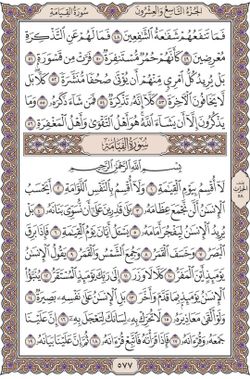 سُورَةُ القِيَامَةِ الجُزْءُ التَّاسِعُ وَالعِشْرُونَ
فَمَا تَنفَعُهُمْ شَفَٰعَةُ ٱلشَّٰفِعِينَ ٤٨ فَمَا لَهُمْ عَنِ ٱلتَّذْكِرَةِ
مُعْرِضِينَ ٤٩ كَأَنَّهُمْ حُمُرٌ مُّسْتَنفِرَةٌ ٥٠ فَرَّتْ مِن قَسْوَرَةٍ ٥١
بَلْ يُرِيدُ كُلُّ ٱمْرِئٍ مِّنْهُمْ أَن يُؤْتَىٰ صُحُفًا مُّنَشَّرَةً ٥٢ كَلَّا بَل
لَّا يَخَافُونَ ٱلْءَاخِرَةَ ٥٣ كَلَّآ إِنَّهُۥ تَذْكِرَةٌ ٥٤ فَمَن شَآءَ ذَكَرَهُۥ ٥٥ وَمَا
يَذْكُرُونَ إِلَّآ أَن يَشَآءَ ٱللَّهُ هُوَ أَهْلُ ٱلتَّقْوَىٰ وَأَهْلُ ٱلْمَغْفِرَةِ ٥٦
سُورَةُ القِيَامَةِ
بِسْمِ ٱللَّهِ ٱلرَّحْمَٰنِ ٱلرَّحِيمِ
لَآ أُقْسِمُ بِيَوْمِ ٱلْقِيَٰمَةِ ١ وَلَآ أُقْسِمُ بِٱلنَّفْسِ ٱللَّوَّامَةِ ٢ أَيَحْسَبُ
ٱلْإِنسَٰنُ أَلَّن نَّجْمَعَ عِظَامَهُۥ ٣ بَلَىٰ قَٰدِرِينَ عَلَىٰٓ أَن نُّسَوِّيَ بَنَانَهُۥ ٤
بَلْ يُرِيدُ ٱلْإِنسَٰنُ لِيَفْجُرَ أَمَامَهُۥ ٥ يَسْـَٔلُ أَيَّانَ يَوْمُ ٱلْقِيَٰمَةِ ٦ فَإِذَا بَرِقَ
ٱلْبَصَرُ ٧ وَخَسَفَ ٱلْقَمَرُ ٨ وَجُمِعَ ٱلشَّمْسُ وَٱلْقَمَرُ ٩ يَقُولُ ٱلْإِنسَٰنُ
يَوْمَئِذٍ أَيْنَ ٱلْمَفَرُّ ١٠ كَلَّا لَا وَزَرَ ١١ إِلَىٰ رَبِّكَ يَوْمَئِذٍ ٱلْمُسْتَقَرُّ ١٢ يُنَبَّؤُا۟
ٱلْإِنسَٰنُ يَوْمَئِذٍۭ بِمَا قَدَّمَ وَأَخَّرَ ١٣ بَلِ ٱلْإِنسَٰنُ عَلَىٰ نَفْسِهِۦ بَصِيرَةٌ ١٤
وَلَوْ أَلْقَىٰ مَعَاذِيرَهُۥ ١٥ لَا تُحَرِّكْ بِهِۦ لِسَانَكَ لِتَعْجَلَ بِهِۦٓ ١٦ إِنَّ عَلَيْنَا
جَمْعَهُۥ وَقُرْءَانَهُۥ ١٧ فَإِذَا قَرَأْنَٰهُ فَٱتَّبِعْ قُرْءَانَهُۥ ١٨ ثُمَّ إِنَّ عَلَيْنَا بَيَانَهُۥ ١٩
الحِزْب
٥٨
٥٧٧